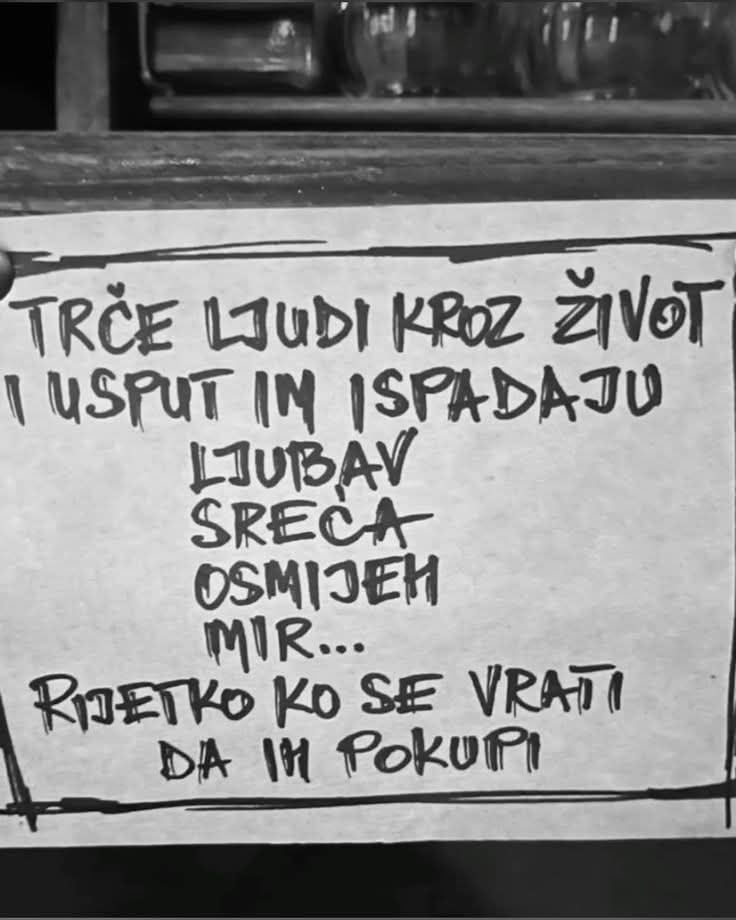 TRČE LJUDI KROZ ŽIVOT
I USPUT IM ISPADAJU
LJUBAV
SREĆA
OSMIJEH
MIR...
RIJETKO KO SE VRATI
DA IH POKUPI